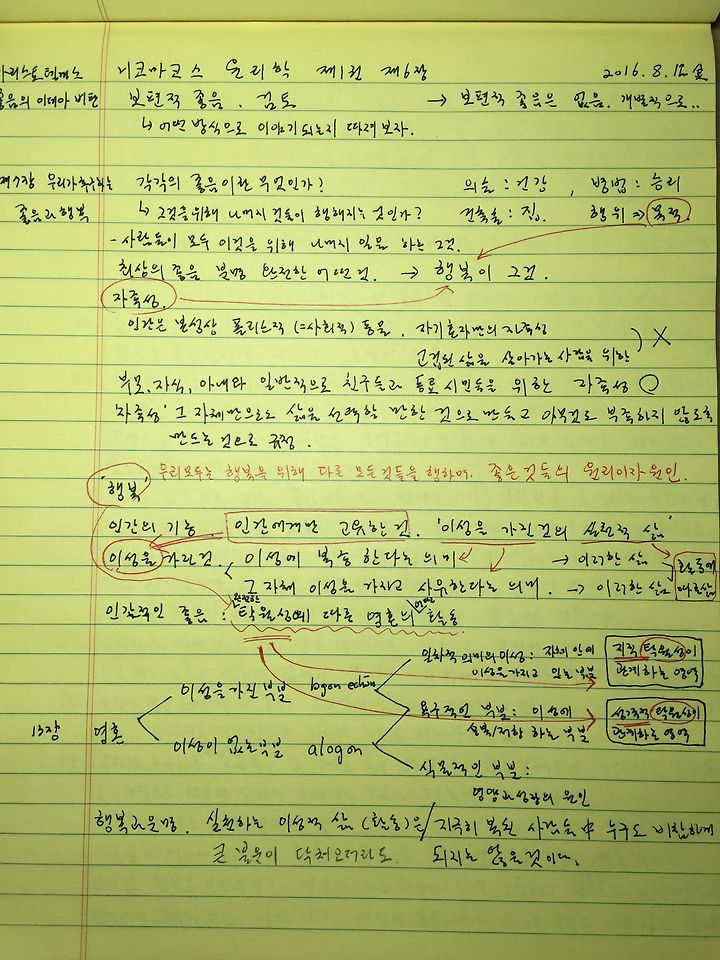 아리스토텔레스 니코마코스 윤리학 제1권 제6장 2016. 8. 12 金
좋음의 이데아 비판 보편적 좋음. 검토 → 보편적 좋음은 없음. 개별적으로..
↳ 어떤 방식으로 이야기되는지 따져보자.
제7장 우리가 추구하는 각각의 좋음이란 무엇인가? 의술 : 건강, 병법 : 승리
좋음과 행복 ↳ 그것을 위해 나머지 것들이 행해지는 것인가? 건축술 : 집. 행위 ⇒ 목적.
- 사람들이 모두 이것을 위해 나머지 일을 하는 그것.
최상의 좋음 분명 완전한 어떤 것. → 행복이 그것.
자족성.
인간은 본성상 폴리스적 (=사회적) 동물. 자기 혼자만의 자족성
고립된 삶을 살아가는 사람을 위한 ) X
부모, 자식, 아내와 일반적으로 친구들과 동료 시민들을 위한 자족성 ○
'자족성' 그 자체만으로도 삶을 선택할 만한 것으로 만들고 아무것도 부족하지 않도록
만드는 것으로 규정.
'행복' 우리 모두는 행복을 위해 다른 모든 것들을 행하며. 좋은 것들의 원리이자 원인.
인간의 기능. 인간에게만 고유한 것. '이성을 가진 것의 실천적 삶'
이성을 가진 것. 이성에 복종한다는 의미 → 이러한 삶 활동에
그 자체 이성을 가지고 사유한다는 의미. → 이러한 삶 따른 삶
인간적인 좋음 : 완전한 탁월성에 따른 영혼의 활동
일차적 의미의 이성 : 자체 안에 지적 탁월성이
이성을 가진 부분 logon echon 이성을 가지고 있는 부분 관계하는 영역
13장 영혼 욕구적인 부분 : 이성에 성격적 탁월성이
이성이 없는 부분 alogon 설복/저항 하는 부분 관계하는 영역
식물적인 부분 :
영양과 성장의 원인
행복과 운명. 실천하는 이성적 삶 (활동)은 / 지극히 복된 사람들 中 누구도 비참하게
큰 불운이 닥쳐오더라도. 되지는 않을 것이다.